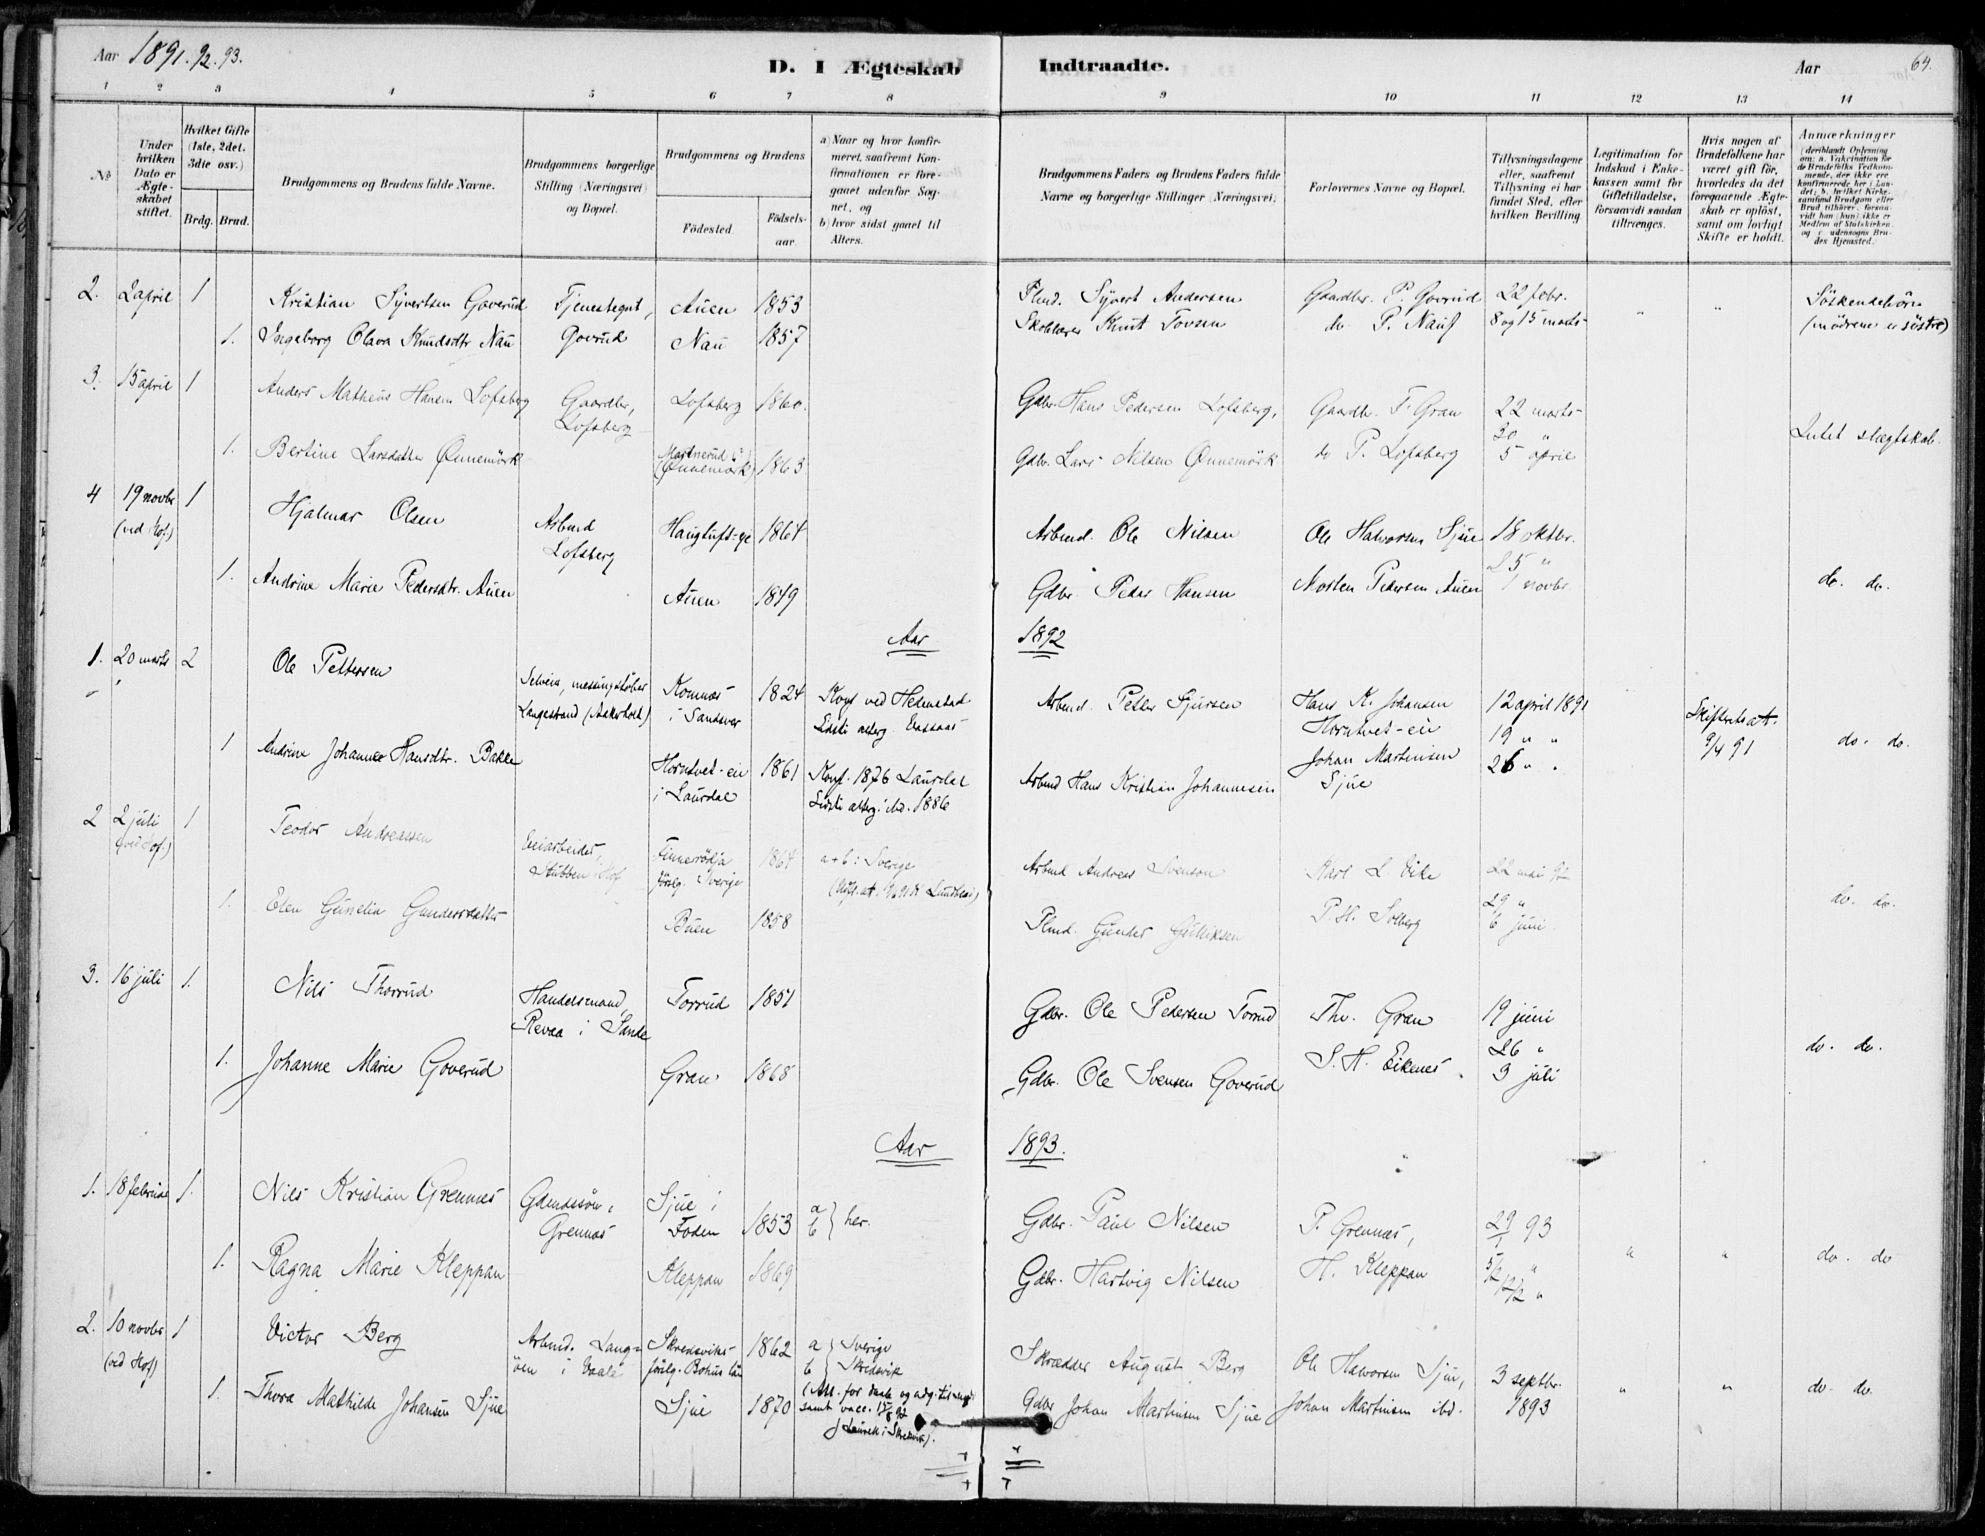 Aar 1891. 92. 93.
D. I Ægteskab Indtraadte.
Aar 64.
1 2 3 4 5 6 7 8 9 10 11 12 13 14
No
Under hvilken Dato er Ægteskabet stiftet.
Hvilket Gifte (1ste, 2det. 3die osv.)
Brdg. Brud.
Brudgommens og Brudens fulde Navne.
Brudgommens borgerlige Stilling (Næringsvei) og Bopæl.
Brudgommens og Brudens
Fødested. Fødselsaar.
a) Naar og hvor konfirmeret, saafremt Konfirmationen er foregaaet udenfor Sognet, og
b) hvor sidst gaaet til Alters.
Brudgommens Faders og Brudens Faders fulde Navne og borgerlige Stillinger (Næringsvei)
Forlovernes Navne og Bopæl.
Tillysningsdagene eller, saafremt Tillysning ei har fundet Sted, efter hvilken Bevilling
Legitimation for Indskud i Enkekassen samt for Giftetilladelse, forsaavidt saadan tiltrænges.
Hvis nogen af Brudefolkene har været gift før, hvorledes da det foregaaende Ægteskab er opløst, samt om lovligt Skifte er holdt.
Anmærkninger
2. 2 april 1 Kristian Syvertsen Goverud Tjenestegut, Auen 1853 Plmd. Syvert Andersen Gaardbr. P. Govrud 22 febr. Söskendebörn
1. Ingeborg Olava Knudsdtr Nau Govrud Nau 1857 Skolelærer Knut Tovsen do P. Nauf 8 og 15 marts " " (mödrene er söstre)
3. 15 april 1 Anders Matheus Hansen Lofsberg Gaardbr, Lofsberg Lofsberg 1860. Gdbr. Hans Pedersen Lofsberg, Gaardb. T. Gran 22 marts
30 "
1. Bertine Larsdatter Ønnemörk (Ønnemörk) 1863 Gdbr. Lars Nilsen Ønnemörk do P. Lofsberg 5 april Intet slægtskab.
4 19 novbr (ved Hof.) 1 Hjalmar Olsen Arbmd Lofsberg 1864 Arbmd. Ole Nilsen Ole Halvorsen Sjue 18 oktbr.
25 "
1. Andrine Marie Pedersdtr. Auen Auen 1849 Gdbr. Peder Hansen Morten Pedersen Auen 1 novbr. do. do.
Aar 1892
1. 20 marts 2 Ole Pettersen Selveier, messingstöber Langestrand Komnæs i Sandsver 1824 Konf ved Hedenstad Arbmd. Peter Sjursen Hans K. Johansen Horntvet-eie 12 april 1891 Skifteretsatt. 9/4 91
19 " "
1 Andrine Johannes Hansdtr. Bakke Horntvet-eie i Laurdal 1861 Konf. 1876 Laurdal Sidste alterg. 1886 Arbmd Hans Kristian Johannesen Johan Martinsen Sjue 26 " " do. do.
2 2 juli (ved Hof.) 1 Teodor Andreassen Veiarbeider, Stubben Hof Finnerödja förslg. Sverige 1864 a + b: Sverige Arbmd Andreas Svenson Karl L. Vike 22 mai 92
29 "
1. Elen Gunelia Gundersdatter Buen 1858 Plmd. Gunder Gulliksen P. H. Solberg 6 juni do. do.
3. 16 juli 1. Nils Thorrud Handelsmand, Revaa i Sande Torrud 1851 Gdbr. Ole Pedersen Torrud Thv. Gran 19 juni
26 "
1. Johanne Marie Goverud Gran 1868 Gdbr. Ole Svensen Goverud S. H. Eikenes 3 juli do. do.
Aar 1893.
1. 18 februar 1. Nils Kristian Grennes Grennes Sjue i Foden 1853 a b } her. Gdbr. Paul Nilsen P. Grennes, 29/1 93
1. Ragna Marie Kleppan Kleppan 1869 Gdbr. Hartvig Nilsen H. Kleppan 5/2 " 12/2 " " " do. do
2. 10 novbr (ved Hof) 1 Victor Berg Arbmd. Langöen i Vaale Skredsviks förslg. Bohus län 1862 a b } Sverige Skredsvik Skrædder August Berg Ole Halvorsen Sjue, 3 septbr.
1. Thora Mathilde Johansen Sjue Sjue 1870 Gdbr Johan Martinsen Sjue Johan Martinsen ibd. 1893 " " do. do.